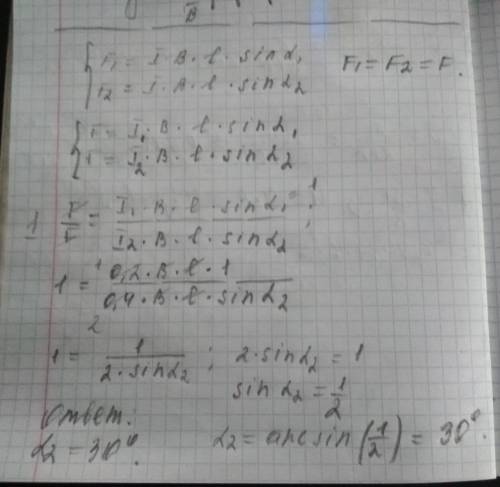 B
F₁ = I · B · l · sin α₁
F₂ = I · B · l · sin α₂
F₁ = F₂ = F.
F = I₁ · B · l · sin α₁
F = I₂ · B · l · sin α₂
1 F/F = I₁ · B · l · sin α₁ / I₂ · B · l · sin α₂ ;
1 = 0,2 · B · l · 1 / 0,4 · B · l · sin α₂
2
1 = 1 / 2 · sin α₂ ; 2 · sin α₂ = 1
sin α₂ = 1/2
Ответ:
α₂ = 30°. α₂ = arcsin (1/2) = 30°.